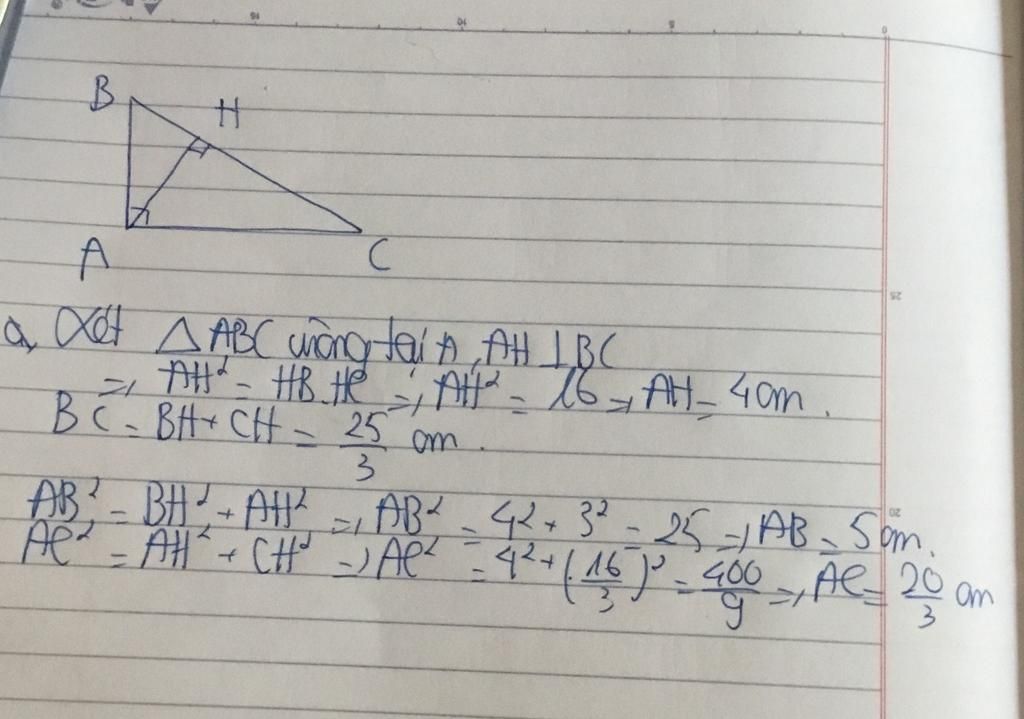 B
H
A
C
a, Xét △ABC vuông tại A, AH ⊥ BC
=> AH² = HB.HC => AH² = 16 => AH = 4cm.
BC = BH + CH = 25/3 cm.
AB² = BH² + AH² => AB² = 4² + 3² = 25 => AB = 5cm.
AC² = AH² + CH² => AC² = 4² + (16/3)² = 400/9 => AC = 20/3 cm